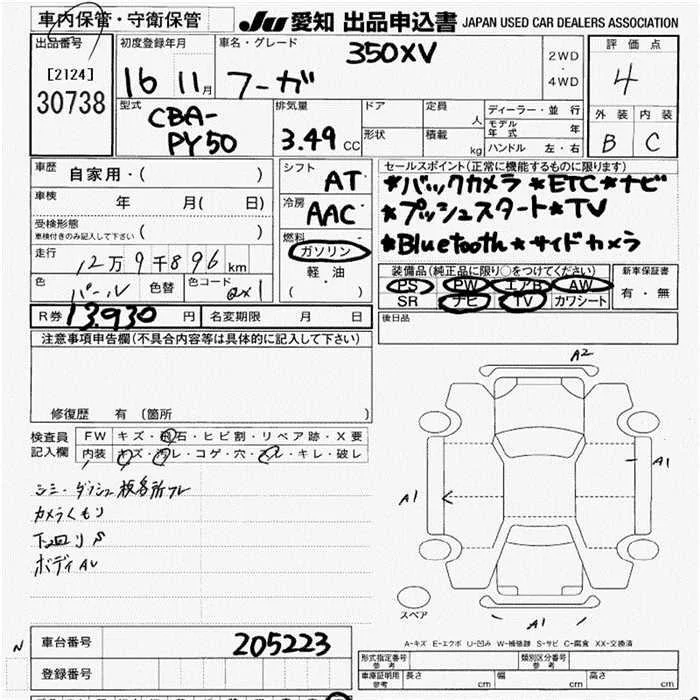 車内保管・守衛保管
JU 愛知 出品申込書 JAPAN USED CAR DEALERS ASSOCIATION
出品番号
[2124]
30738
初度登録年月
16 11月
車名・グレード
350XV
フーガ
2WD
・
4WD
評価点
4
外装 内装
B C
型式
CBA-
PY50
排気量
3.49 CC
ドア
形状
定員 人
積載 kg
ディーラー・並行
モデル年式 年
ハンドル 左・右
車歴
自家用・( )
車検
年 月( 日)
受検形態
車検付きのみ記入して下さい ( )
走行
12万9千896km
色
パール
色替
色コード
QX1
シフト
AT
冷房
AAC
燃料
ガソリン
軽油
( ・ )
セールスポイント(正常に機能するものに限ります)
*バックカメラ *ETC*ナビ
*プッシュスタート*TV
*Bluetooth*サイドカメラ
装備品(純正品に限り○をつけてください)
PS PW エアB AW
SR ナビ TV カワシート
新車保証書
有・無
R券 13,930 円
名変期限 月 日
後日品
注意事項申告欄(不具合内容等は具体的に記入して下さい)
修復歴 有(箇所 )
検査員
記入欄
FW キズ・飛石・ヒビ割・リペア跡・X要
内装 キズ・汚レ・コゲ・穴・スレ・キレ・破レ
シミ・ダッシュ板各所スレ
カメラくもり
下回りS
ボディAU
A2
A1
A1
A1
スペア
A-キズ E-エクボ U-凹み W-補修跡 S-サビ C-腐食 XX-交換済
N
車台番号
205223
登録番号
形式指定番号
参考
類別区分番号
参考
車庫証明用
参考
長さ cm
幅 cm
高さ cm